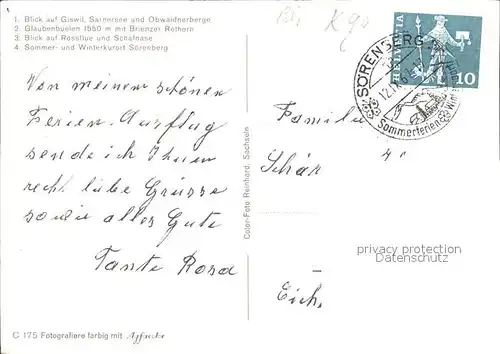 1. Blick auf Giswil, Sarnersee und Obwaldnerberge
2. Glaubenbuelen 1550 m mit Brienzer Rothorn
3. Blick auf Rossflue und Schafnase
4. Sommer- und Winterkurort Sörenberg
K 94
HELVETIA
10
SÖRENBERG
Sommerferien
Von meinem schönen
Ferien-Ausflug
sende ich Ihnen
recht liebe Grüsse
sowie alles Gute
Tante Rosa
Color-Foto Reinhard, Sachseln
Familie
Schär
Eich.
privacy protection
Datenschutz
C 175 Fotografiere farbig mit Agfacolor